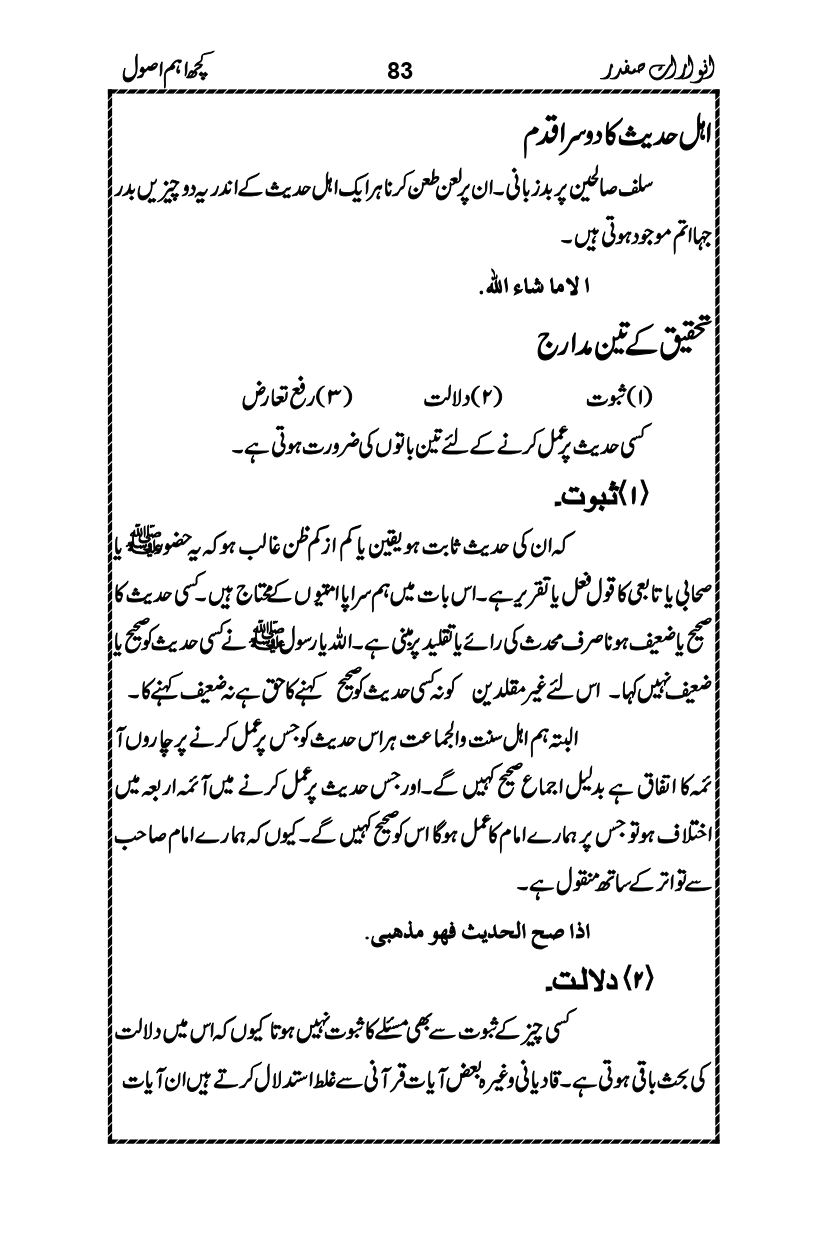 انوارات صفدر 83 کچھ اہم اصول
اہل حدیث کا دوسرا قدم
سلف صالحین پر بدزبانی۔ ان پر لعن طعن کرنا ہر ایک اہل حدیث کے اندر یہ دو چیزیں بدر
جہا اتم موجود ہوتی ہیں۔
الا ما شاء اللہ.
تحقیق کے تین مدارج
(۱) ثبوت (۲) دلالت (۳) رفع تعارض
کسی حدیث پر عمل کرنے کے لئے تین باتوں کی ضرورت ہوتی ہے۔
(۱) ثبوت۔
کہ ان کی حدیث ثابت ہو یقین یا کم از کم ظن غالب ہو کہ یہ حضور ﷺ یا
صحابی یا تابعی کا قول فعل یا تقریر ہے۔ اس بات میں ہم سراپا امتیوں کے محتاج ہیں۔ کسی حدیث کا
صحیح یا ضعیف ہونا صرف محدث کی رائے یا تقلید پر مبنی ہے۔ اللہ یا رسول ﷺ نے کسی حدیث کو صحیح یا
ضعیف نہیں کہا۔ اس لئے غیر مقلدین کو نہ کسی حدیث کو صحیح کہنے کا حق ہے نہ ضعیف کہنے کا۔
البتہ ہم اہل سنت والجماعت ہر اس حدیث کو جس پر عمل کرنے پر چاروں آ
ئمہ کا اتفاق ہے بدلیل اجماع صحیح کہیں گے۔ اور جس حدیث پر عمل کرنے میں آئمہ اربعہ میں
اختلاف ہو تو جس پر ہمارے امام کا عمل ہوگا اس کو صحیح کہیں گے۔ کیوں کہ ہمارے امام صاحب
سے تواتر کے ساتھ منقول ہے۔
اذا صح الحدیث فھو مذھبی.
(۲) دلالت۔
کسی چیز کے ثبوت سے بھی مسئلے کا ثبوت نہیں ہوتا کیوں کہ اس میں دلالت
کی بحث باقی ہوتی ہے۔ قادیانی وغیرہ بعض آیات قرآنی سے غلط استدلال کرتے ہیں ان آیات